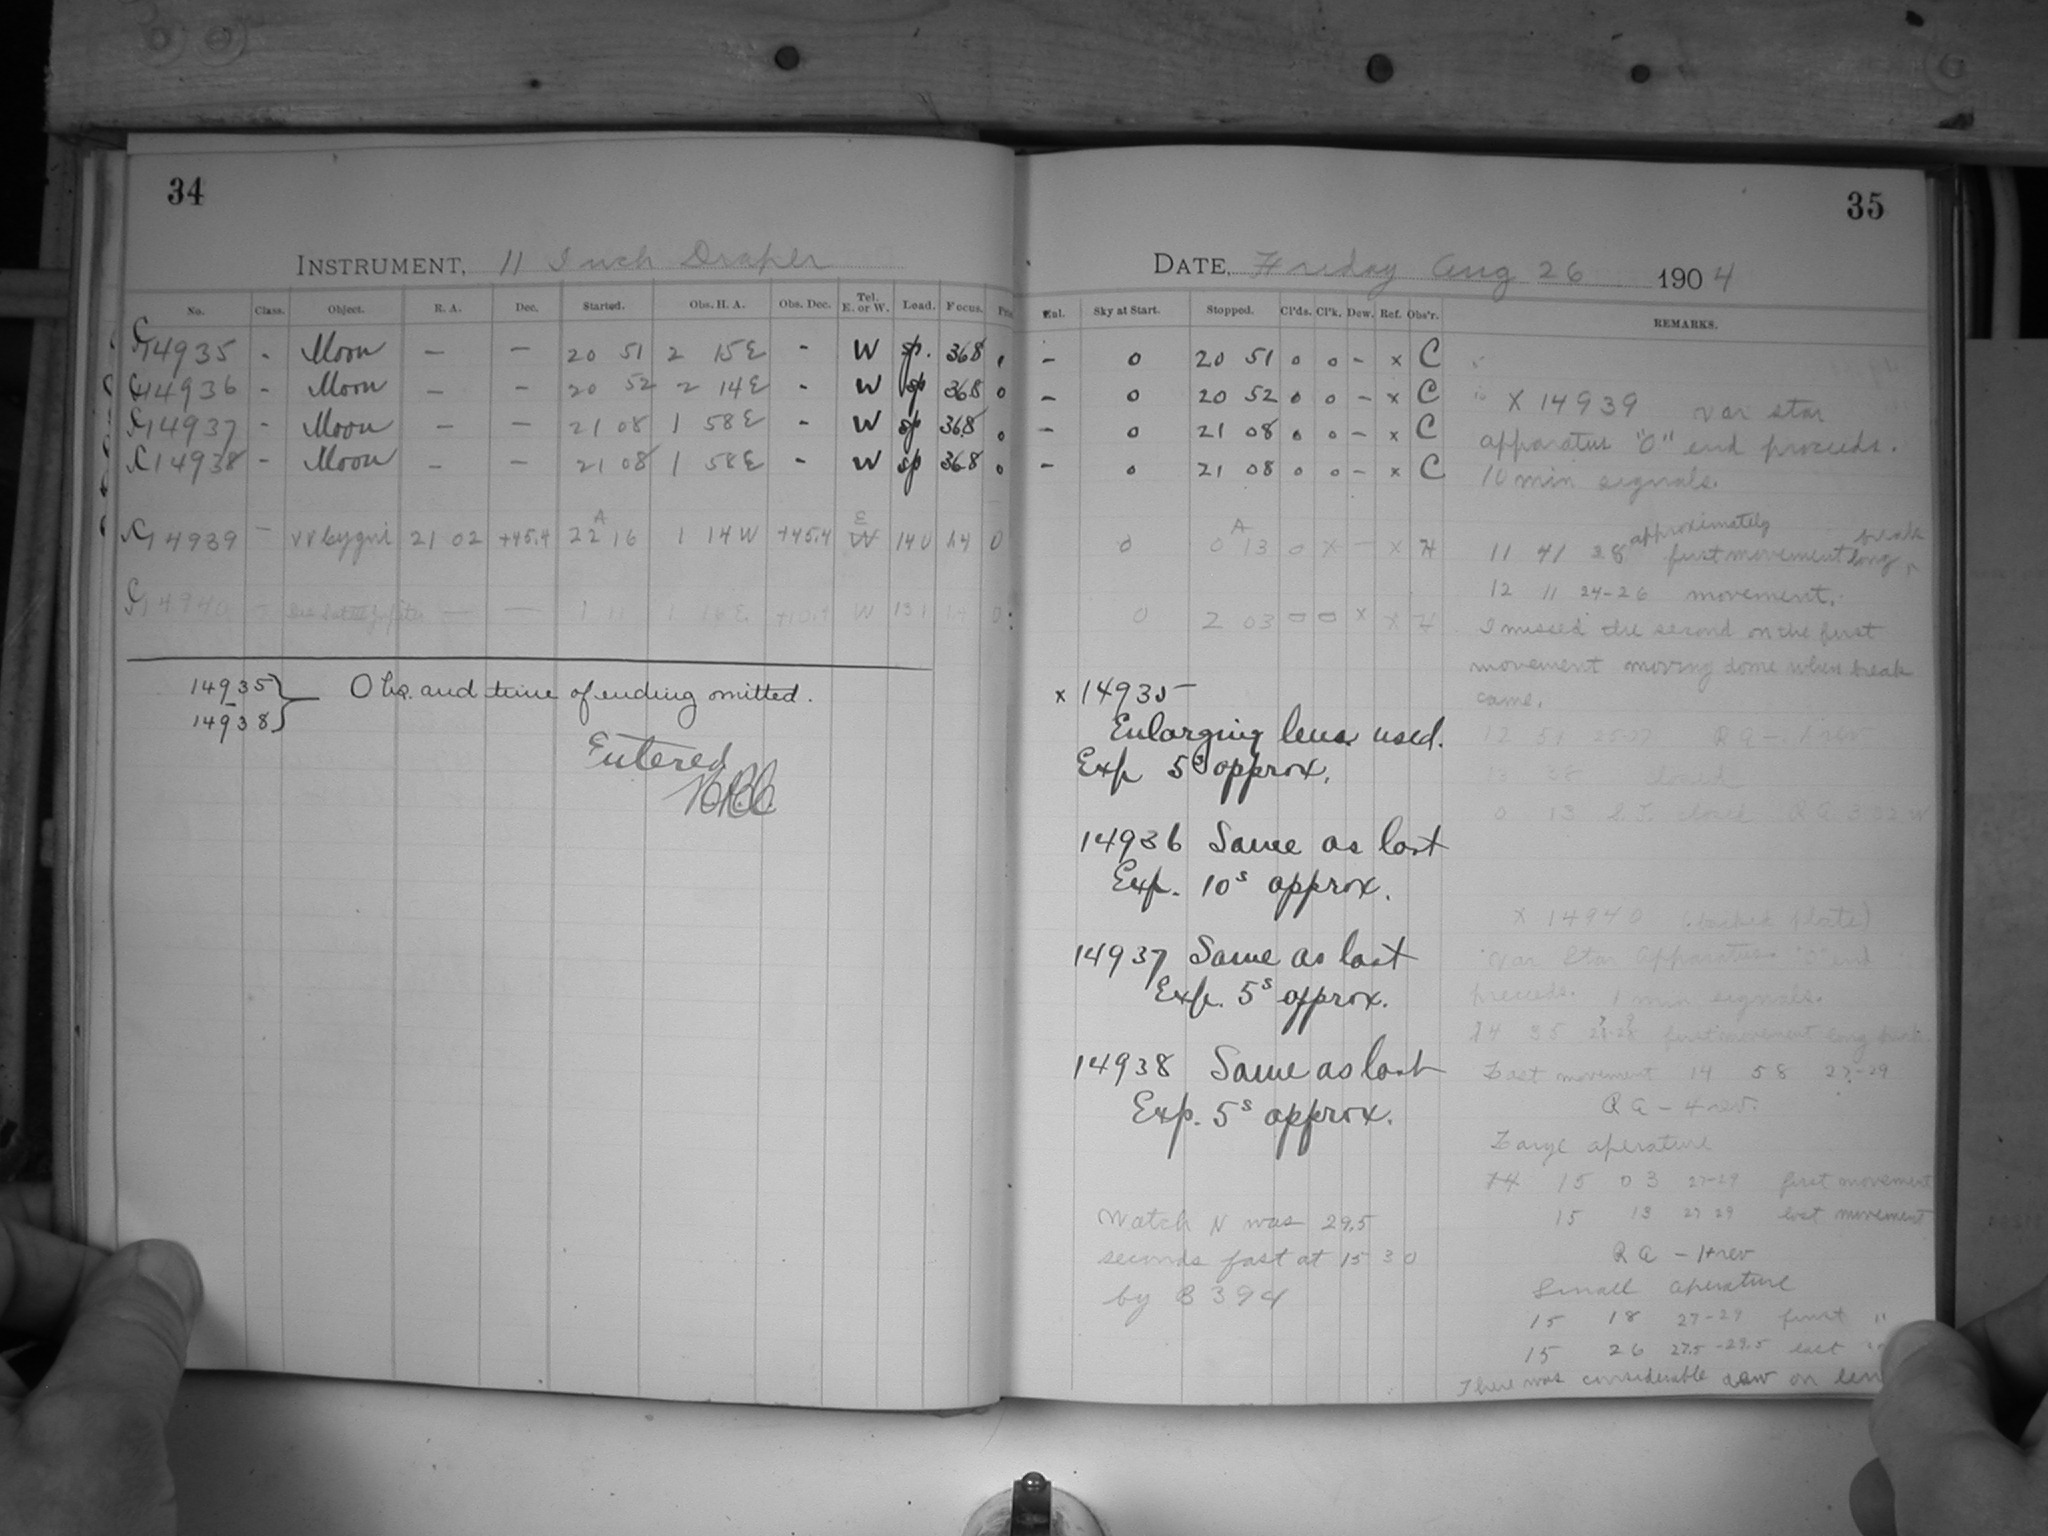 34
INSTRUMENT, 11 Inch Draper
No. Class. Object. R. A. Dec. Started. Obs. H. A. Obs. Dec. Tel. E. or W. Load. Focus.
C 14935 - Moon — — 20 51 2 15E - W sp. 36.8
C 14936 - Moon — — 20 52 2 14E - W sp 36.8 0
C 14937 - Moon — — 21 08 1 58E - W sp 36.8
C 14938 - Moon — — 21 08 1 58E - W sp 36.8
C 14939 — 21 02 +45.4 22 16 1 14W +45.4 E 140 0
C 14940 — — 1 11 1 16E W 131
14935 } Obs. and time of ending omitted.
–
14938
Entered
35
DATE, Friday Aug 26 1904
Sky at Start. Stopped. Cl'ds. Cl'k. Dew. Ref. Obs'r. REMARKS.
- 0 20 51 0 0 - x C
- 0 20 52 0 0 - x C
- 0 21 08 0 0 - x C
- 0 21 08 0 0 - x C
0 0 13 0 x - x H
0 2 03 0 0 x x H
x 14935
Enlarging lens used.
Exp 5s approx.
14936 Same as last
Exp. 10s approx.
14937 Same as last
Exp. 5s approx.
14938 Same as last
Exp. 5s approx.
Watch N was 29.5
seconds fast at 15 30
by B 394
X 14939 var star
apparatus "O" end proceeds.
10 min signals.
11 41 28 approximately first movement long break
12 11 24-26 movement.
I missed the second on the first
movement moving dome when break
came.
12 51 25-27 RA - 1 rev
13 38 closed
0 13 S.T. closed RA 3 22 W
X 14940 (backed plate)
Var Star Apparatus. "O" end
preceeds. 1 min signals.
14 35 first movement long break
Last movement 14 58 27-29
RA - 4 rev.
Large aperature
15 03 27-29 first movement
15 13 27 29 last movement
RA - 1+rev
Small aperature
15 18 27-29 first "
15 26 27.5-29.5 last "
There was considerable dew on